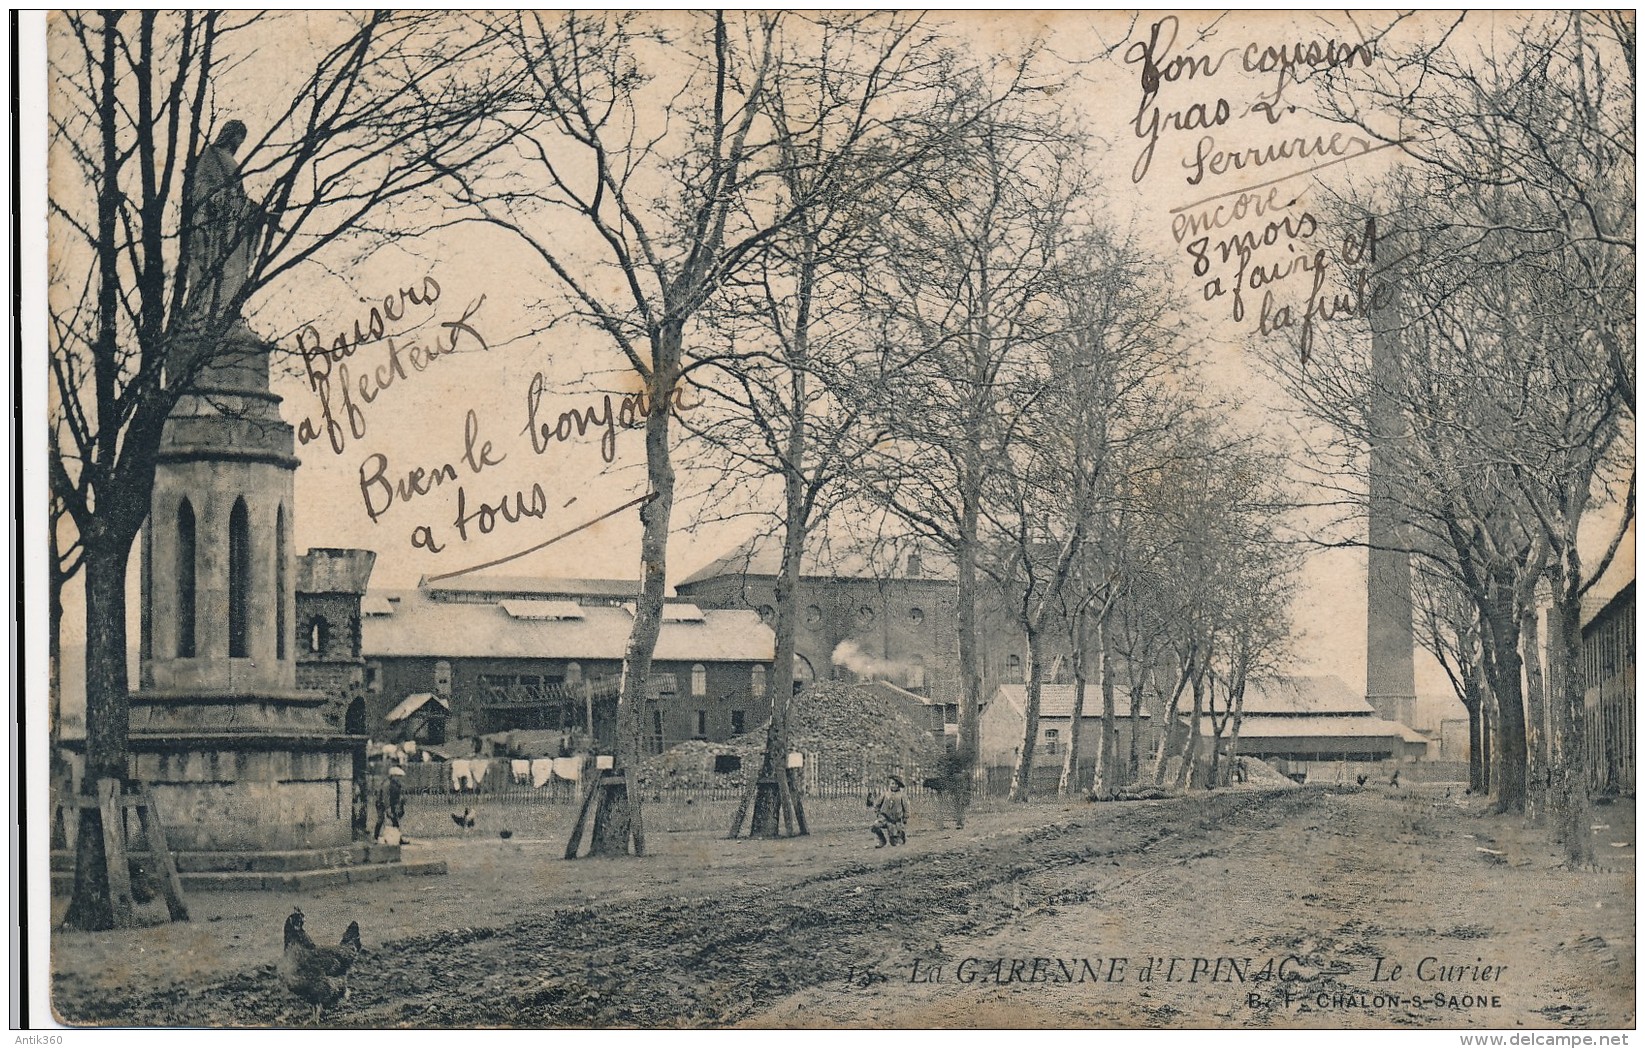 Ton cousin
Gras L.
Serrurier
encore
8 mois
a faire et
la fuite
Baisers
affecteux
Bien le bonjour
a tous -
15 La GARENNE d'EPINAC - Le Curier
B. F. CHALON-S-SAONE
Antik360
www.delcampe.net